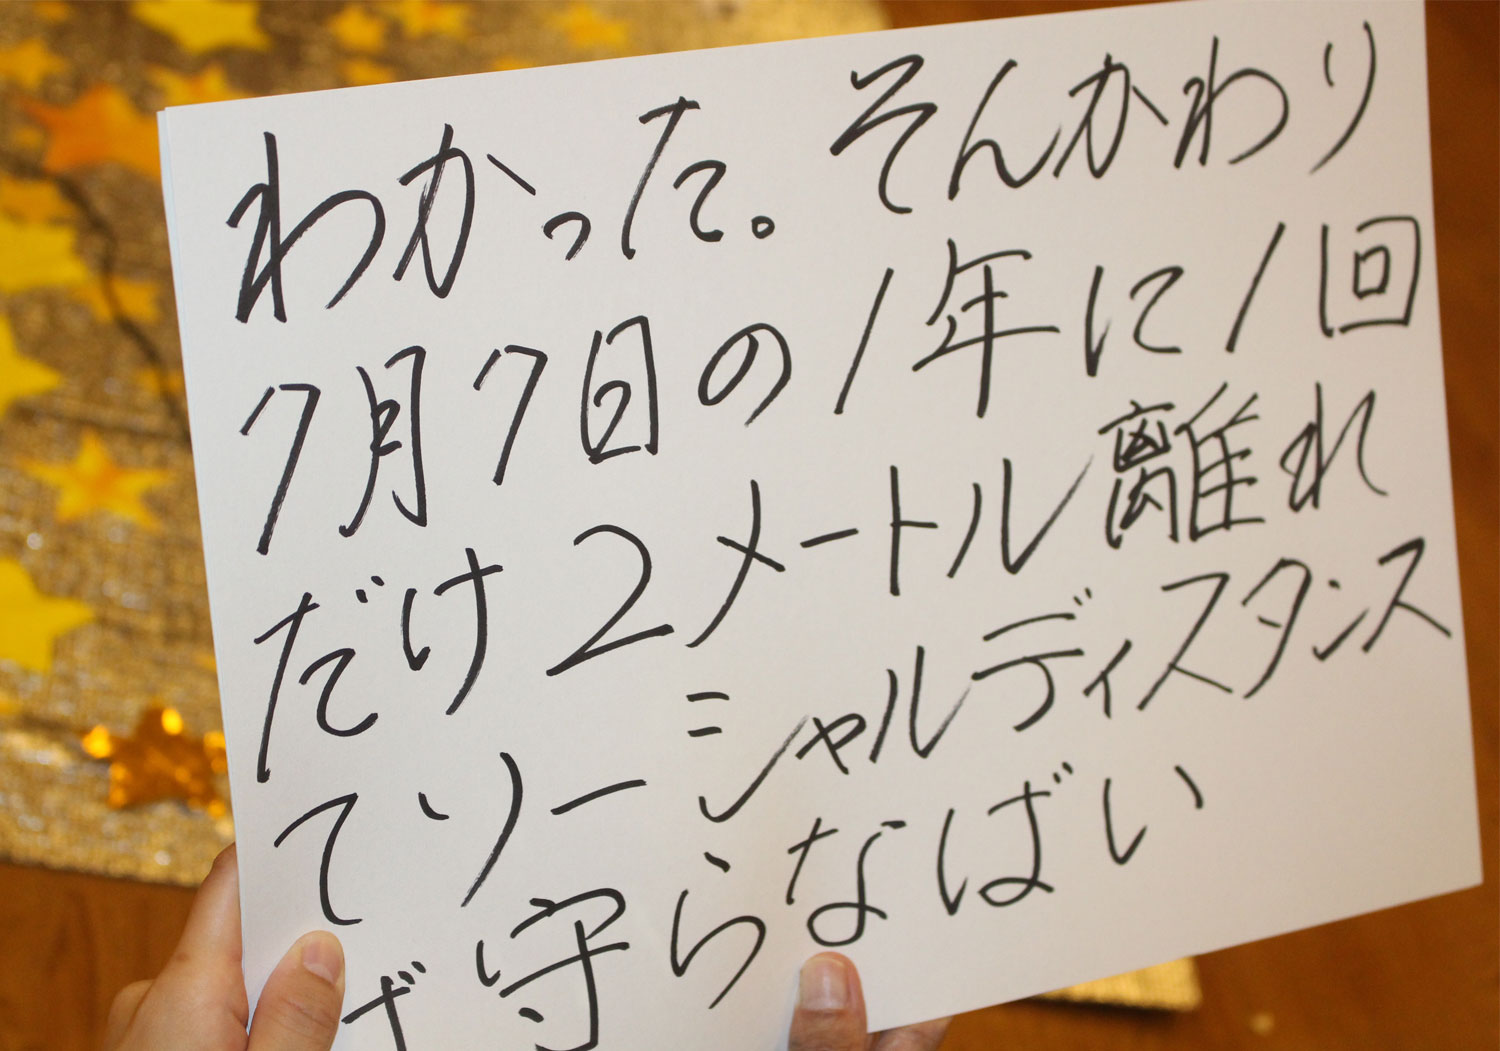 わかった。そんかわり
7月7日の1年に1回
だけ2メートル離れ
てソーシャルディスタンス
ば守らなばい